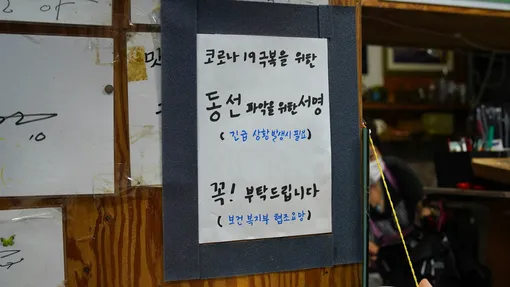 코로나 19 극복을 위탄
동선 파악을 위한 서명
( 긴급 상황발생시 필요)
꼭! 부탁드립니다
( 보건복지부 협조요망)
맛
10